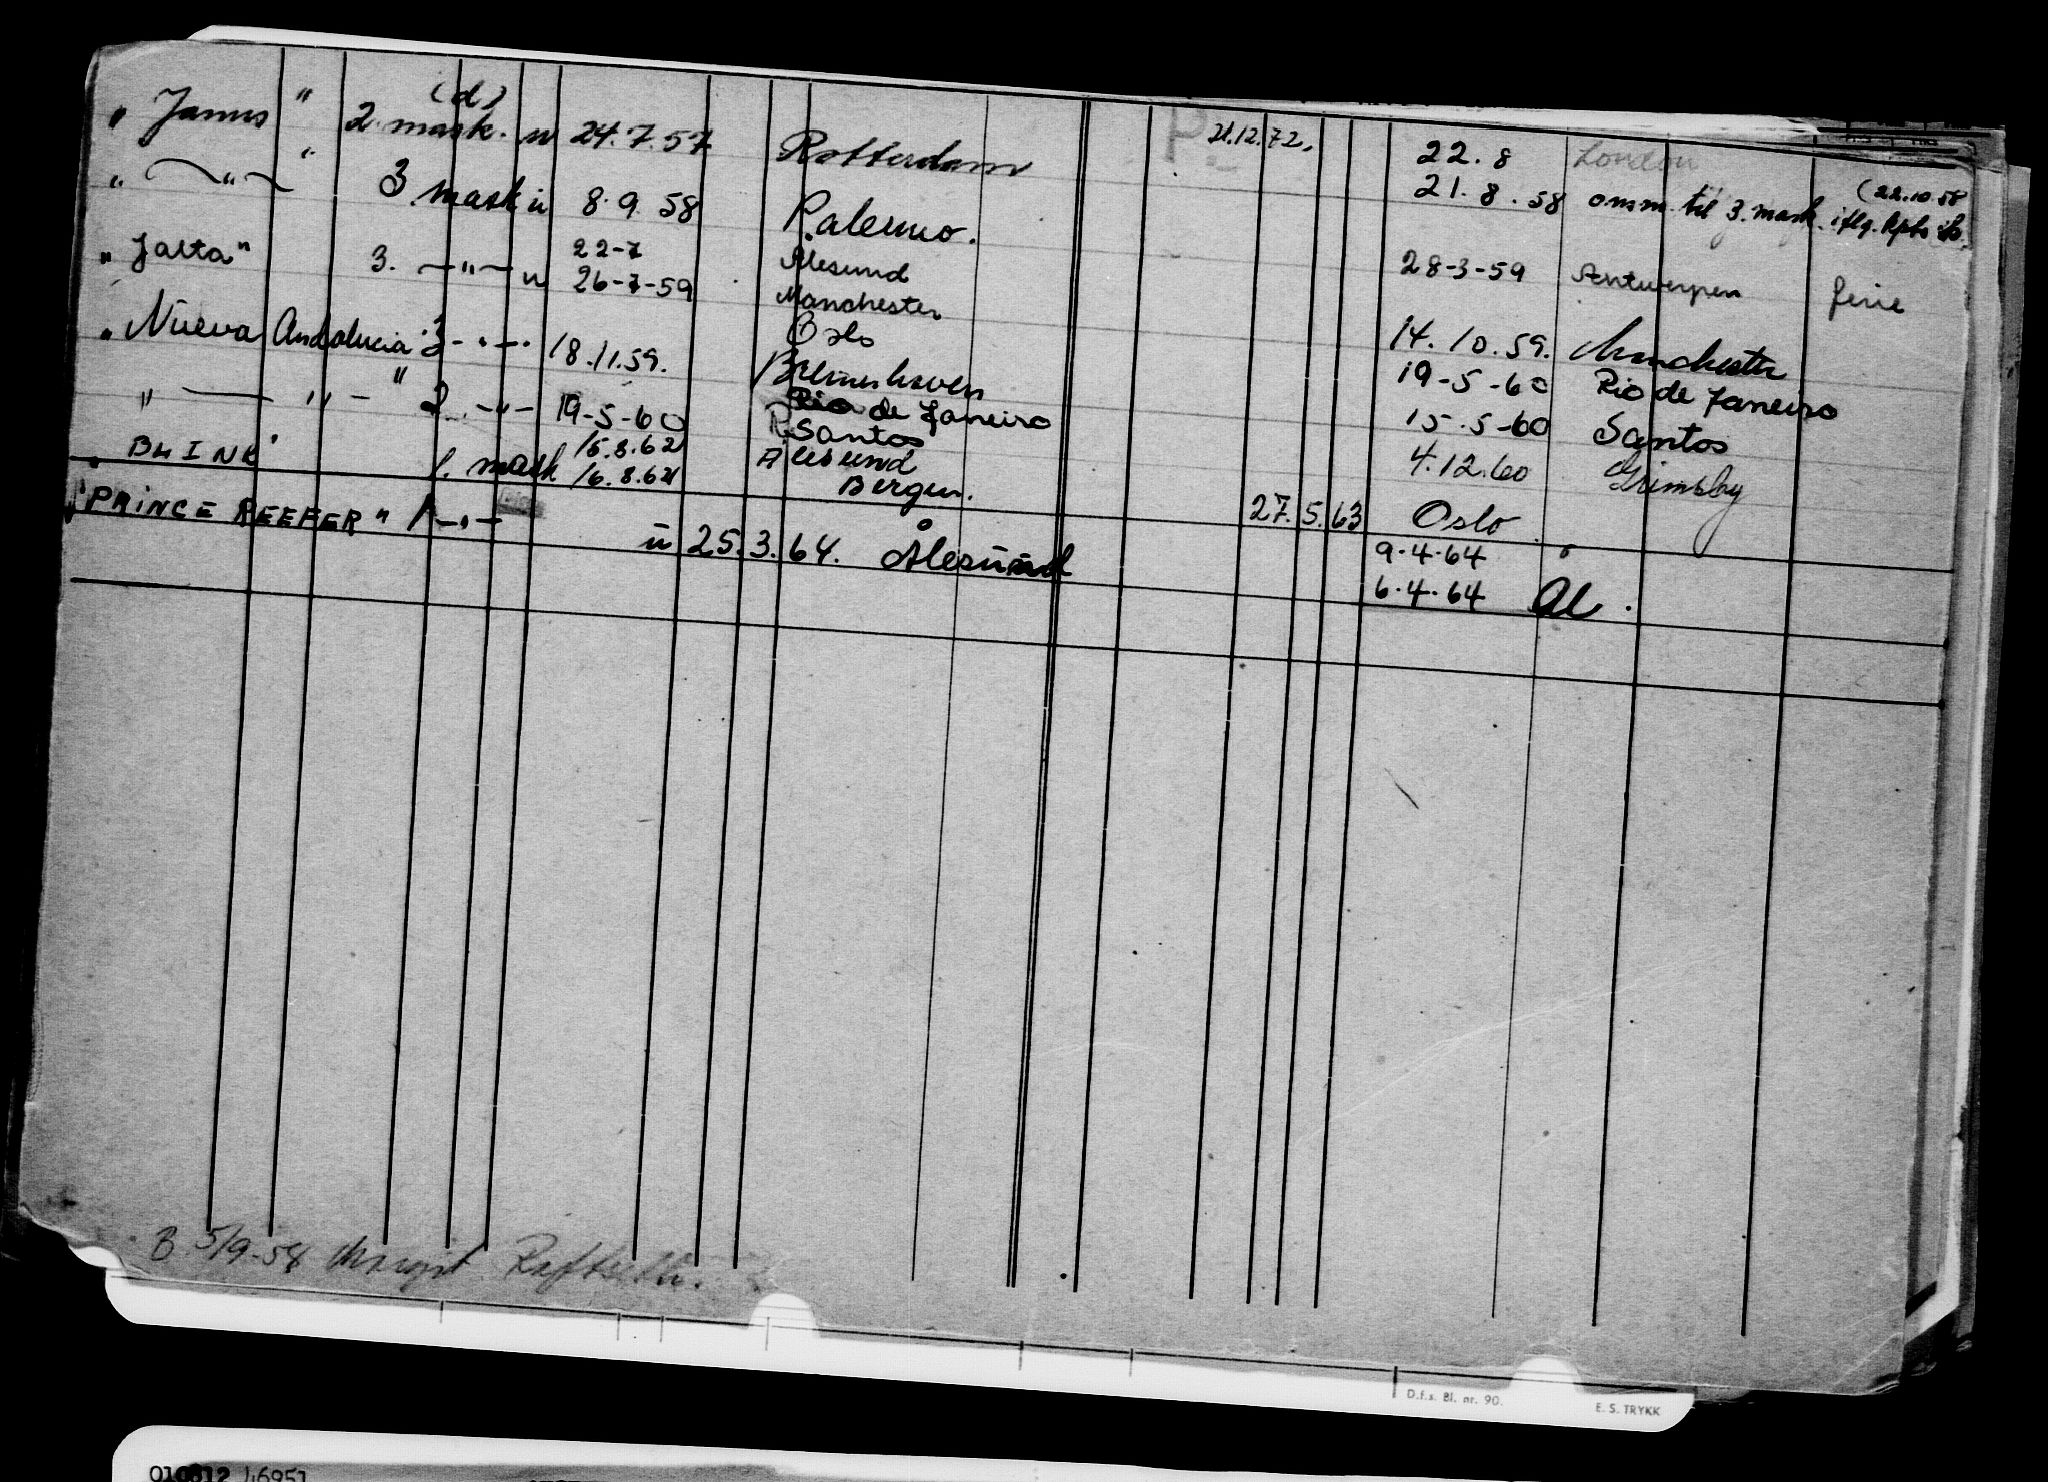 (d)
" Janus " 2. mask. u 24.7.57 Rotterdam 21.12.72. 22.8 London
" —"— " 3. mask u 8.9.58 Palermo. 21.8.58 omm. til 3. mask. (22.10.58
22-7 Ålesund
"Jalta" 3. —"— u 26-7-59 Manchester 28-3-59 Antwerpen ferie
Oslo
"Nueva Andalucia 3 -"-. 18.11.59. Bremerhaven 14.10.59. Manchester
" — " — " 2. -"- 19-5-60 Rio de Janeiro 19-5-60 Rio de Janeiro
Santos 15.5-60 Santos
15.8.62 Ålesund
"BLINK" 1. mask 16.8.62 Bergen. 4.12.60 Grimsby
"PRINCE REEFER" 1 -"- u 25.3.64. Ålesund 27.5.63 Oslo
9.4.64 "
6.4.64 Ål.
B 5/9-58 Margit
D.f.s. Bl. nr. 90. E. S. TRYKK
010812 46951